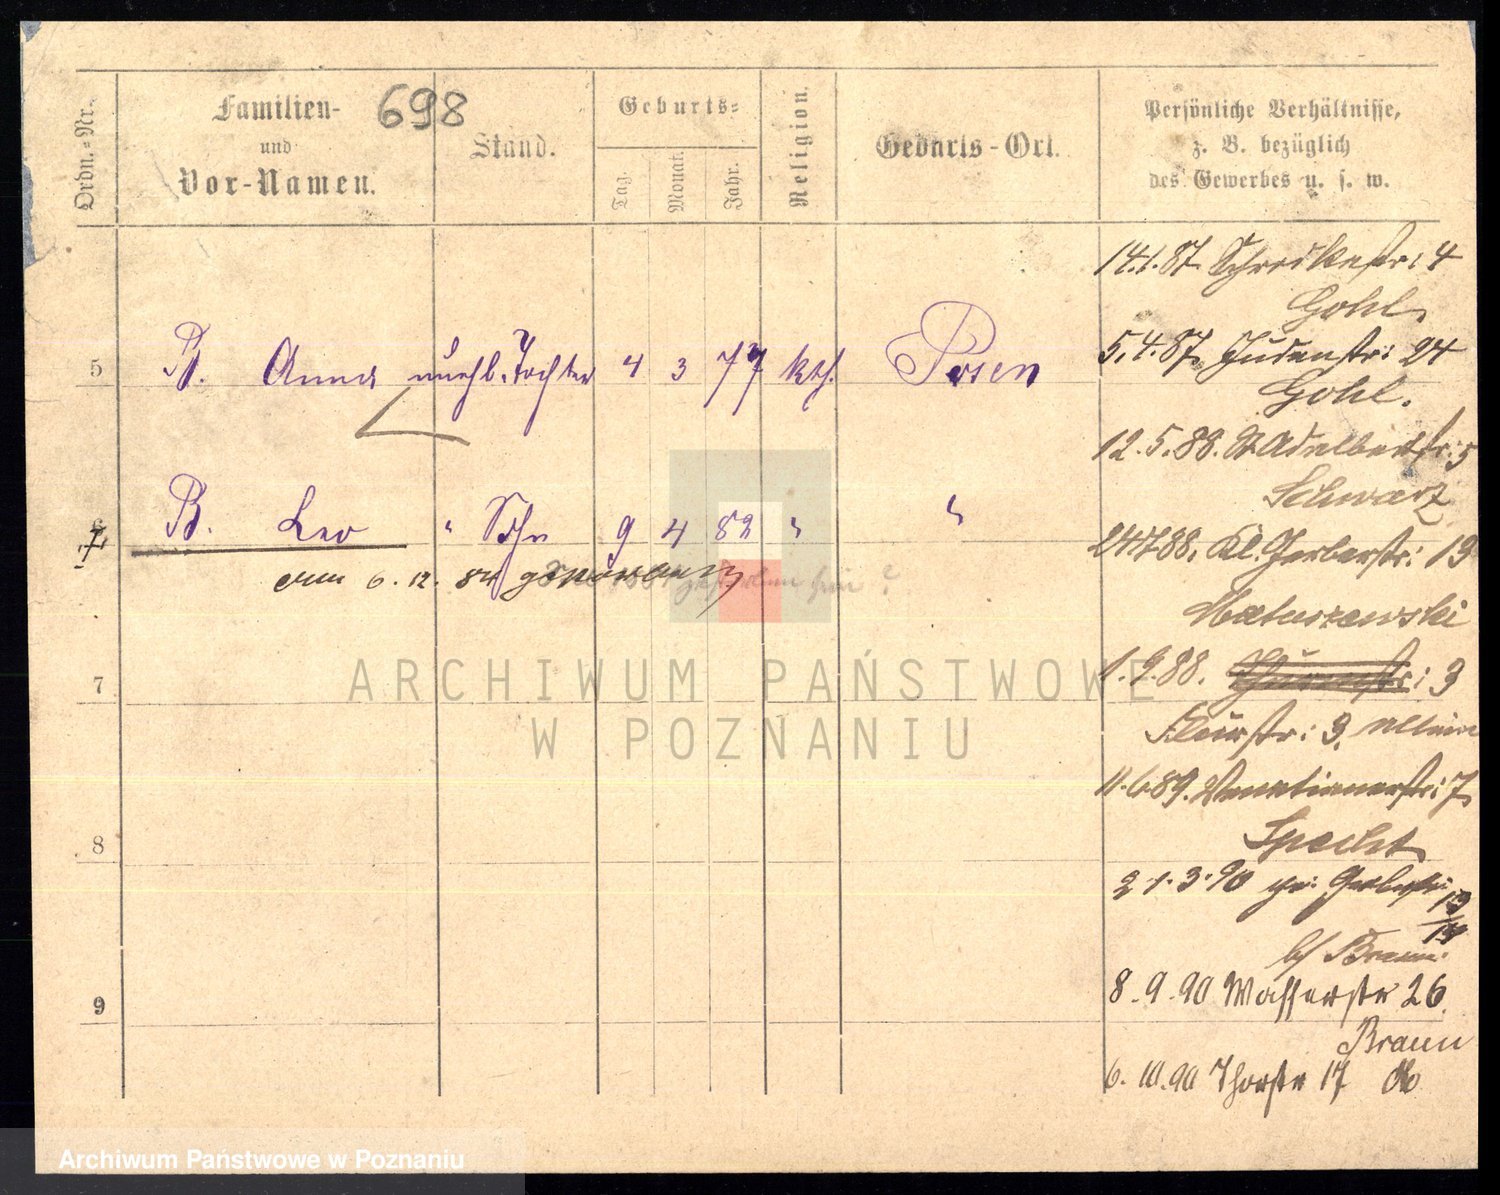 Ordn.=Nr.
Familien-
und
Vor-Namen.
698
Stand.
Geburts=
Tag.
Monat.
Jahr.
Religion.
Geburts-Ort.
Persönliche Verhältnisse,
z. B. bezüglich
des Gewerbes u. s. w.
14.1.87. Schrodkastr: 4
Gohl.
5 B. Anna unehl. Tochter 4 3 77 kth. Posen
5.4.87. Judenstr: 24
Gohl.
12.5.88. St Adalbertstr: 5
Schwarz
7 B. Leo " Sohn 9 4 82 " "
24.7.88. Kl. Gerberstr: 13
6.12.84 gestorben
Matuszewski
7
1.9.88. : 3
: 3. allein
11.6.89. Venetianerstr: 7
8
Specht
21.3.90 gr. Gerberstr: 13/14
b/ Braun.
9
8.9.90 Wasserstr 26.
Braun
6.10.90 Thorstr 17 do
ARCHIWUM PAŃSTWOWE
W POZNANIU
Archiwum Państwowe w Poznaniu